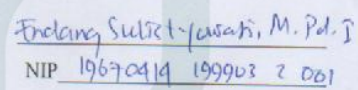 Endang Sulistyowati, M.Pd.I
NIP 19670414 199903 2 001